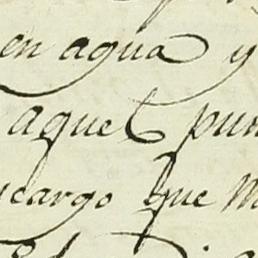 en agua y
aquel pun
cargo que m